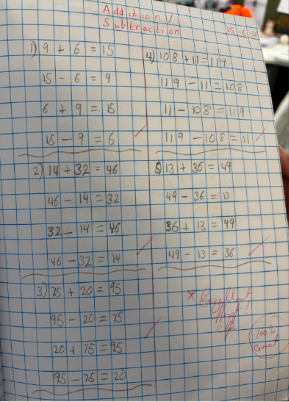 Addition/
Subtraction
1) 9 + 6 = 15
15 - 6 = 9
6 + 9 = 15
15 - 9 = 6
2) 14 + 32 = 46
46 - 14 = 32
32 - 14 = 46
46 - 32 = 14
3) 75 + 20 = 95
95 - 20 = 75
20 + 75 = 95
95 - 75 = 20
4) 108 + 11 = 119
119 - 11 = 108
11 - 108 = 119
119 - 108 = 11
5) 13 + 36 = 49
49 - 36 = 13
36 + 13 = 49
49 - 13 = 36
* Excellent
effort!
100%
Correct